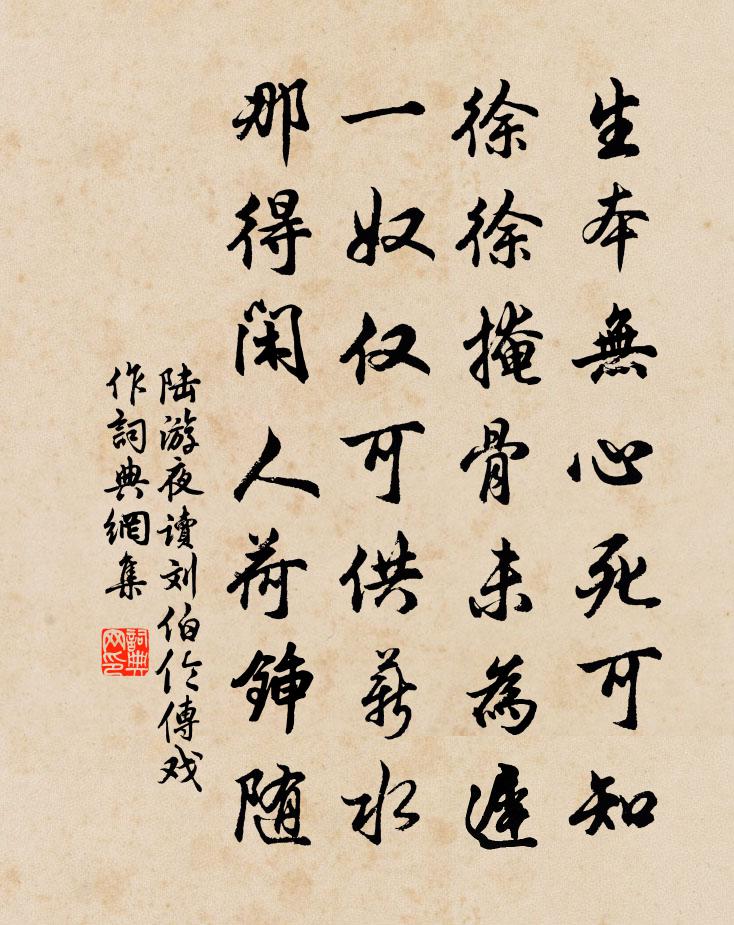 生本無心死可知
徐徐掩骨未為遲
一奴仅可供薪水
那得閑人荷鍤随
陆游夜读刘伯伦傳戏
作詞典網集
詞典网印